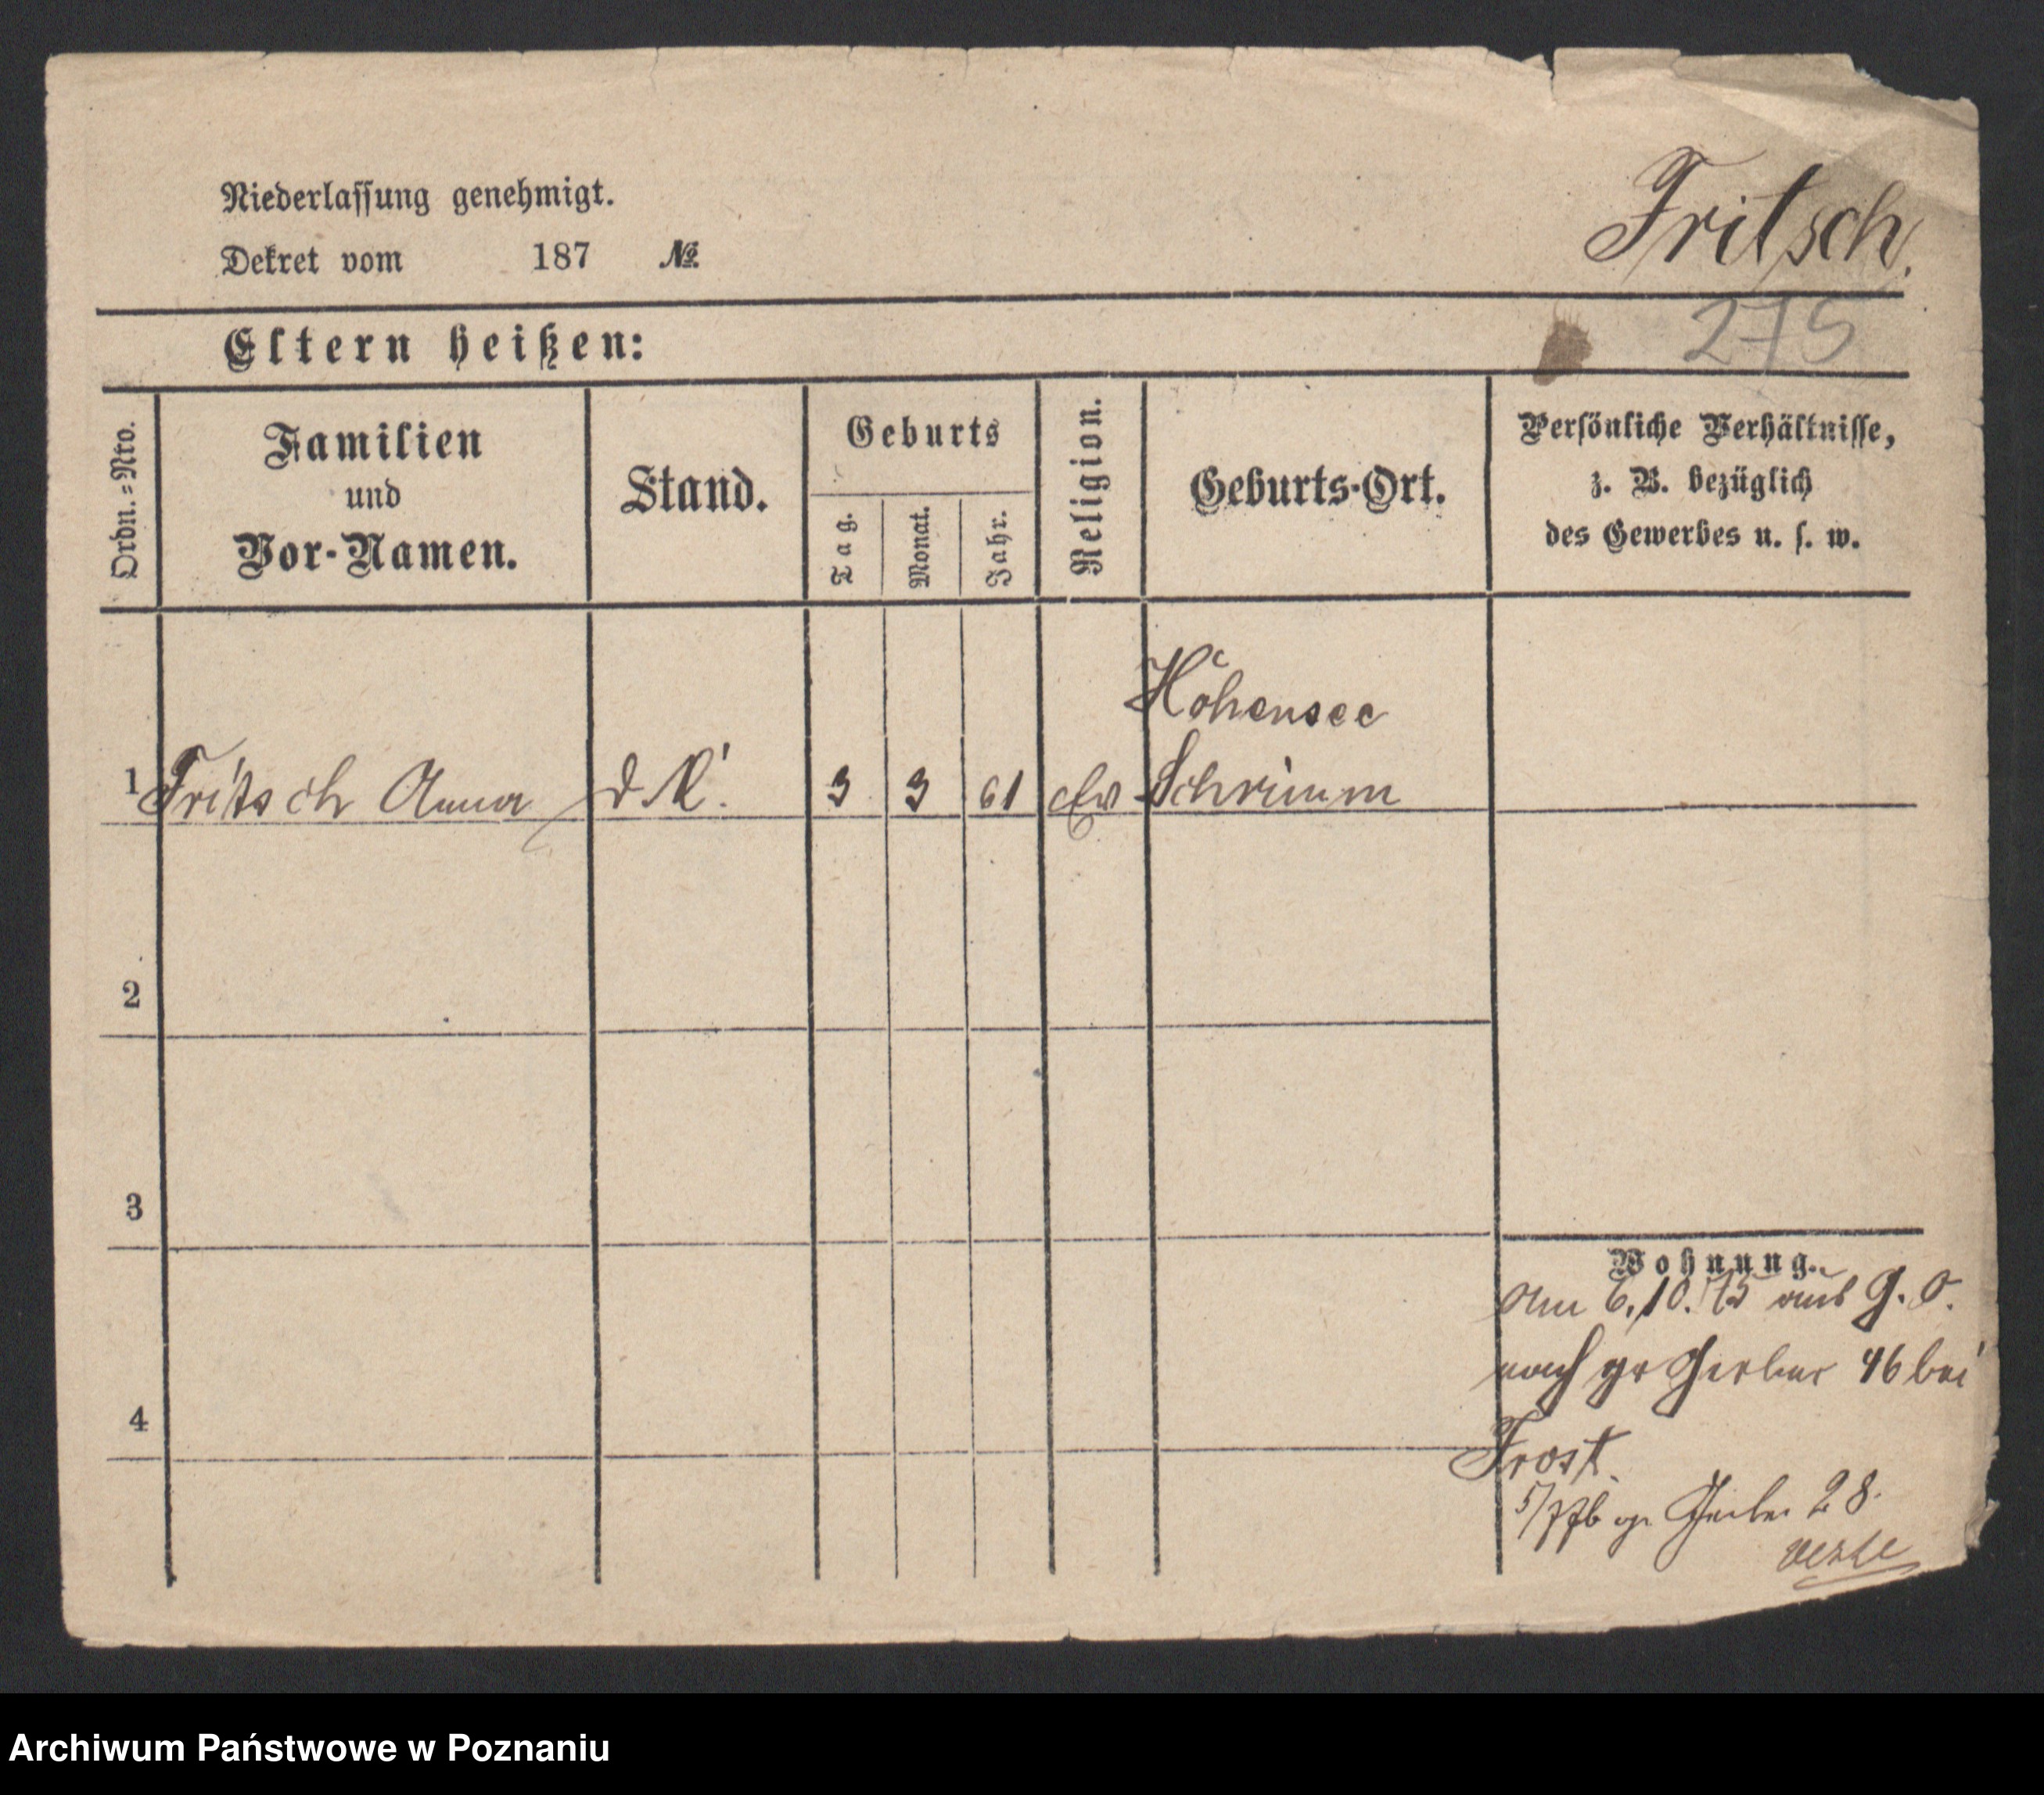 Niederlassung genehmigt.
Dekret vom 187 №
Fritsch.
275
Eltern heißen:
Ordn.=Nro.
Familien
und
Vor-Namen.
Stand.
Geburts
Tag.
Monat.
Jahr.
Religion.
Geburts-Ort.
Persönliche Verhältnisse,
z. B. bezüglich
des Gewerbes u. s. w.
Höhensee
1 Fritsch Anna 3 3 61 Ev Schrimm
2
3
4
Wohnung.
Am 6.10.75 aus G. O.
nach gr Gerber 46 bei
Frost.
gr Gerber 28.
Archiwum Państwowe w Poznaniu